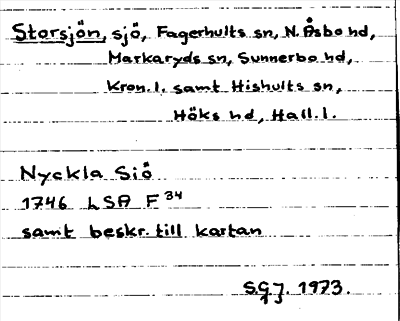 Storsjön, sjö, Fagerhults sn, N. Åsbo hd,
Markaryds sn, Sunnerbo hd,
Kron. l. samt Hishults sn,
Höks hd, Hall. l.
Nyckla Siö
1746 LSA F 34
samt beskr. till kartan
S.G.J. 1973.